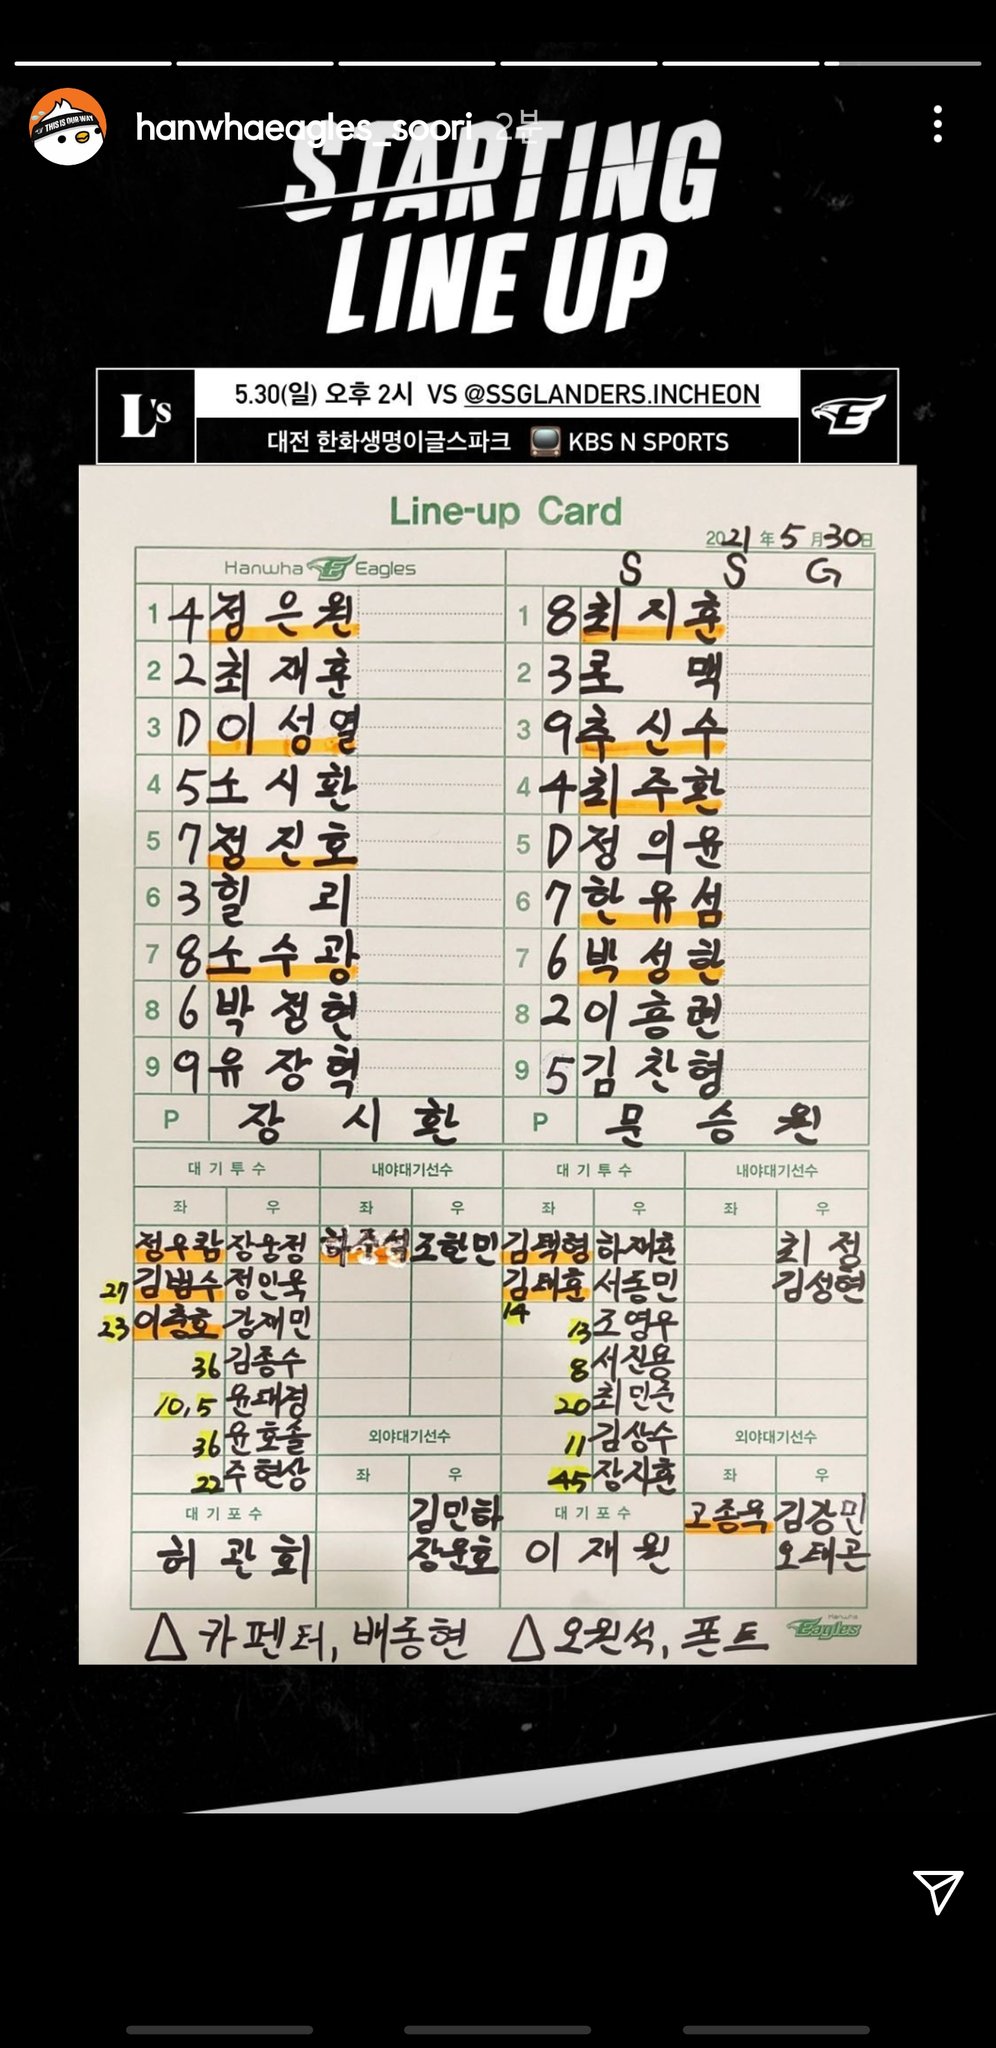 hanwhaeagles_soori 2분
STARTING
LINE UP
L's
5.30(일) 오후 2시 VS @SSGLANDERS.INCHEON
대전 한화생명이글스파크 KBS N SPORTS
Line-up Card
2021 年 5 月 30 日
Hanwha Eagles S S G
1 4 정은원 1 8 최지훈
2 2 최재훈 2 3 로맥
3 D 이성열 3 9 추신수
4 5 노시환 4 4 최주환
5 7 정진호 5 D 정의윤
6 3 힐리 6 7 한유섬
7 8 노수광 7 6 박성한
8 6 박정현 8 2 이흥련
9 9 유장혁 9 5 김찬형
P 장시환 P 문승원
대기투수 내야대기선수 대기투수 내야대기선수
좌 우 좌 우 좌 우 좌 우
정우람 장웅정 하주석 조한민 김택형 하재훈 최정
27 김범수 정인욱 김태훈 서동민 김성현
23 이충호 강재민 14 13 조영우
36 김종수 8 서진용
10,5 윤대경 20 최민준
36 윤호솔 외야대기선수 11 김상수 외야대기선수
22 주현상 좌 우 45 장지훈 좌 우
대기포수 김민하 대기포수 고종욱 김강민
허관회 장운호 이재원 오태곤
△ 카펜터, 배동현 △ 오원석, 폰트 Hanwha Eagles